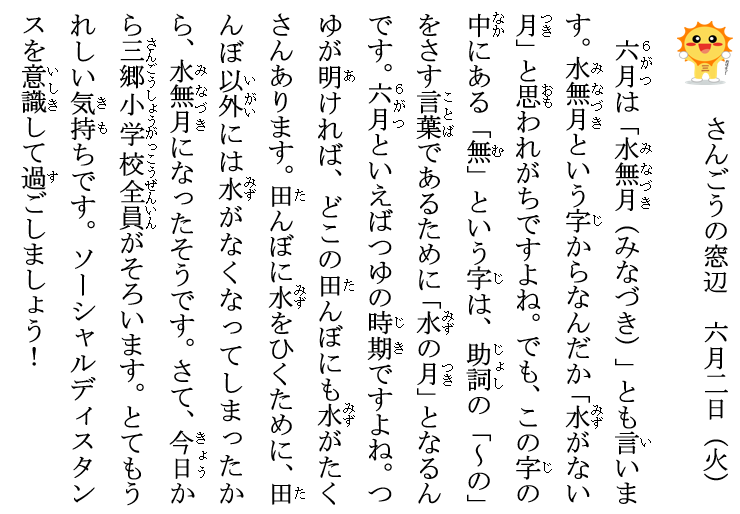 さんごうの窓辺　六月二日（火）
六月は「水無月（みなづき）」とも言いま
す。水無月という字からなんだか「水がない
月」と思われがちですよね。でも、この字の
中にある「無」という字は、助詞の「～の」
をさす言葉であるために「水の月」となるん
です。六月といえばつゆの時期ですよね。つ
ゆが明ければ、どこの田んぼにも水がたく
さんあります。田んぼに水をひくために、田
んぼ以外には水がなくなってしまったか
ら、水無月になったそうです。さて、今日か
ら三郷小学校全員がそろいます。とてもう
れしい気持ちです。ソーシャルディスタン
スを意識して過ごしましょう！